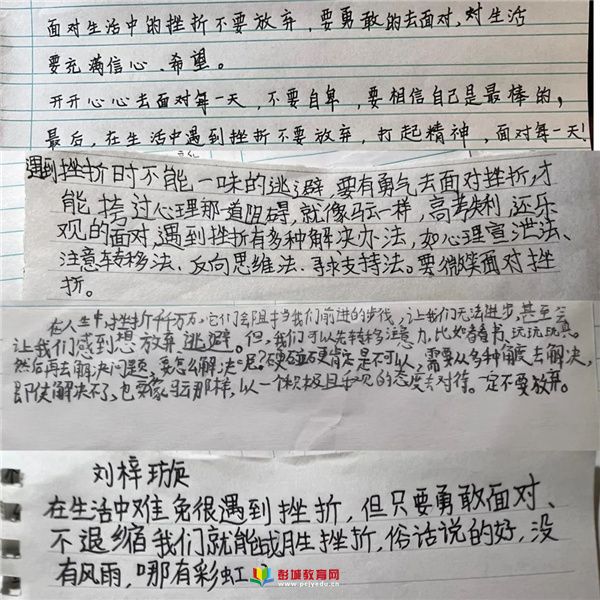 面对生活中的挫折不要放弃，要勇敢的去面对，对生活
要充满信心、希望。
开开心心去面对每一天，不要自卑，要相信自己是最棒的，
最后，在生活中遇到挫折不要放弃，打起精神，面对每一天！
遇到挫折时不能一味的逃避，要有勇气去面对挫折，才
能 挎过心理那道阻碍，就像马云一样，高考失利，还乐
观的面对，遇到挫折有多种解决办法，如心理宣泄法、
注意转移法、反向思维法、寻求支持法。要微笑面对挫
折。
在人生中，挫折千千万万，它们会阻挡我们前进的步伐，让我们无法进步，甚至会
让我们感到想放弃逃避。但，我们可以先转移注意力，比如看看书、玩玩玩具
然后再去解决问题，要怎么解决呢？硬碰硬肯定是不可以，需要从多种角度去解决，
即使解决不了，也要像马云那样，以一个积极且乐观的态度去对待。一定不要放弃。
刘梓璇
在生活中难免很遇到挫折，但只要勇敢面对、
不退缩我们就能战胜挫折，俗话说的好，没
有风雨，哪有彩虹？
彭城教育网
www.pcjyedu.cn